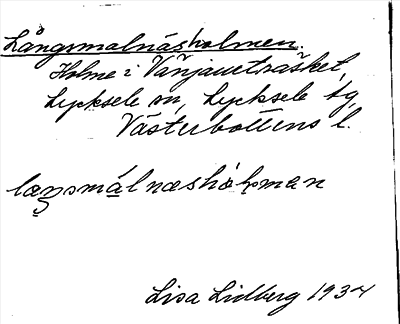 Långsmalnäsholmen.
Holme i Vänjaueträsket,
Lycksele sn, Lycksele tg,
Västerbottens l.
Lisa Lidberg 1934